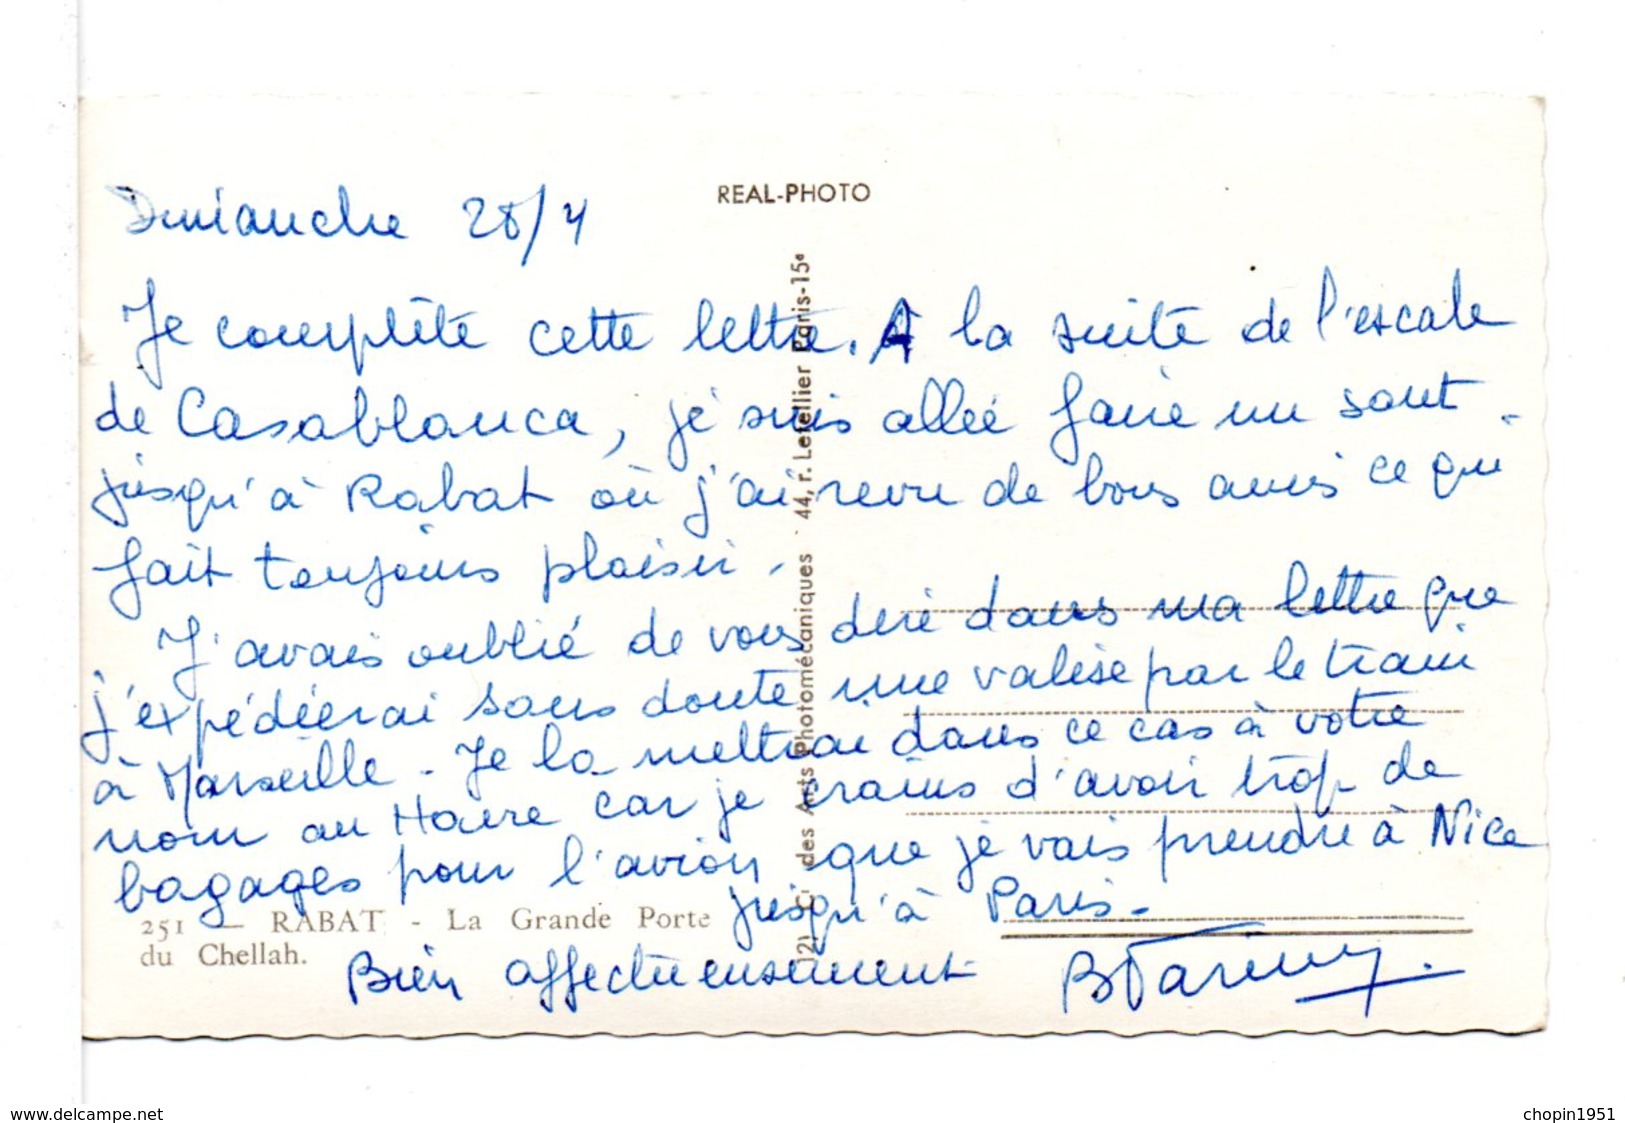 REAL-PHOTO
Dimanche 28/4
Je complète cette lettre. A la suite de l'escale
de Casablanca, je suis allée faire un saut
jusqu'à Rabat où j'ai revu de bons amis ce qui
fait toujours plaisir.
J'avais oublié de vous dire dans ma lettre que
j'expédierai sans doute une valise par le train
à Marseille - Je la mettrai dans ce cas à votre
nom au Havre car je crains d'avoir trop de
bagages pour l'avion que je vais prendre à Nice
jusqu'à Paris -
Bien affectueusement
251 — RABAT - La Grande Porte
du Chellah.
des Arts Photomécaniques 44, r. Letellier Paris-15e
www.delcampe.net
chopin1951